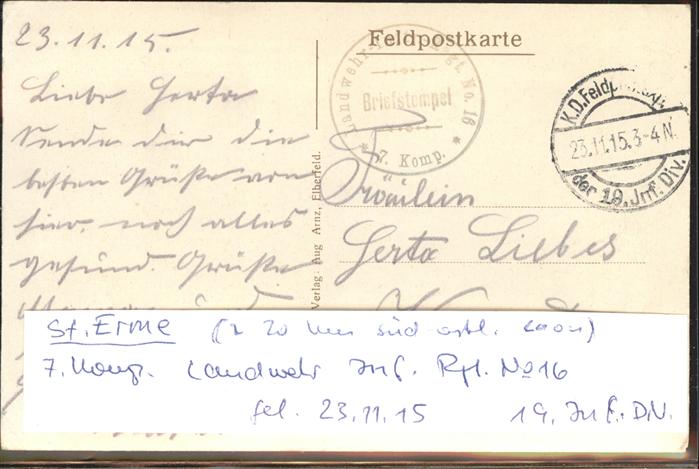 23.11.15.
Liebe Herta
Sende dir die
besten Grüße von
hier, noch alles
gesund. Grüße
Feldpostkarte
Landwehr- No. 16
Briefstempel
* 7. Komp. *
K.D. Feldp
23.11.15.3-4 N.
der 19. Jnf. Div.
Verlag: Aug Arnz, Elberfeld.
Fräulein
Herta Liebes
St. Erme (≈ 20 km süd-östl. Laon)
7. Komp. Landwehr Inf. Rgt. No 16
gel. 23.11.15 19. Inf. DIV.